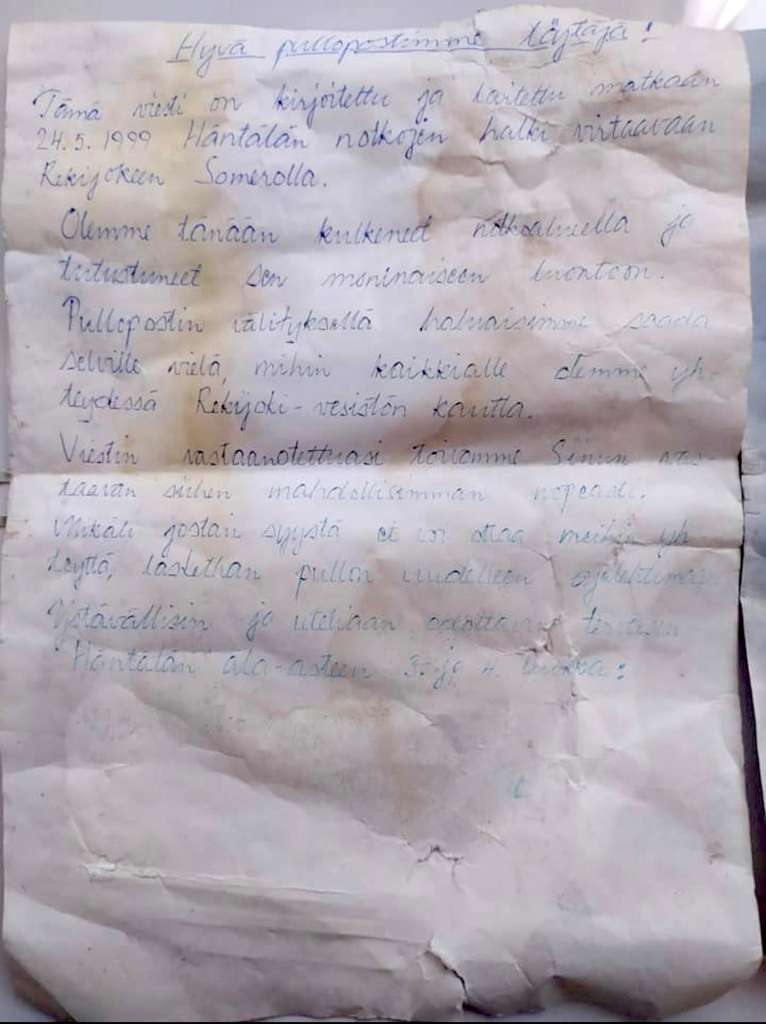 Hyvä pullopostimme täytäjä!
Tämä viesti on kirjoitettu ja laitettu matkaan
24.5.1999 Häntälän notkojen halki virtaavaan
Rekijokeen Somerolla.
Olemme tänään kulkeneet notkoalueella ja
tutustuneet sen moninaiseen luontoon.
Pullopostin välityksellä haluaisimme saada
selville vielä, mihin kaikkialle olemme yh-
teydessä Rekijoki-vesistön kautta.
Viestin vastaanotettuasi toivomme Sinun vas-
taavan siihen mahdollisimman nopeasti.
Mikäli jostain syystä et voi ottaa meihin yh
teyttä, laskethan pullon uudelleen ajelehtimaan
Ystävällisin ja uteliaan odottavin terveisin
Häntälän ala-asteen 3. ja 4. luokka: